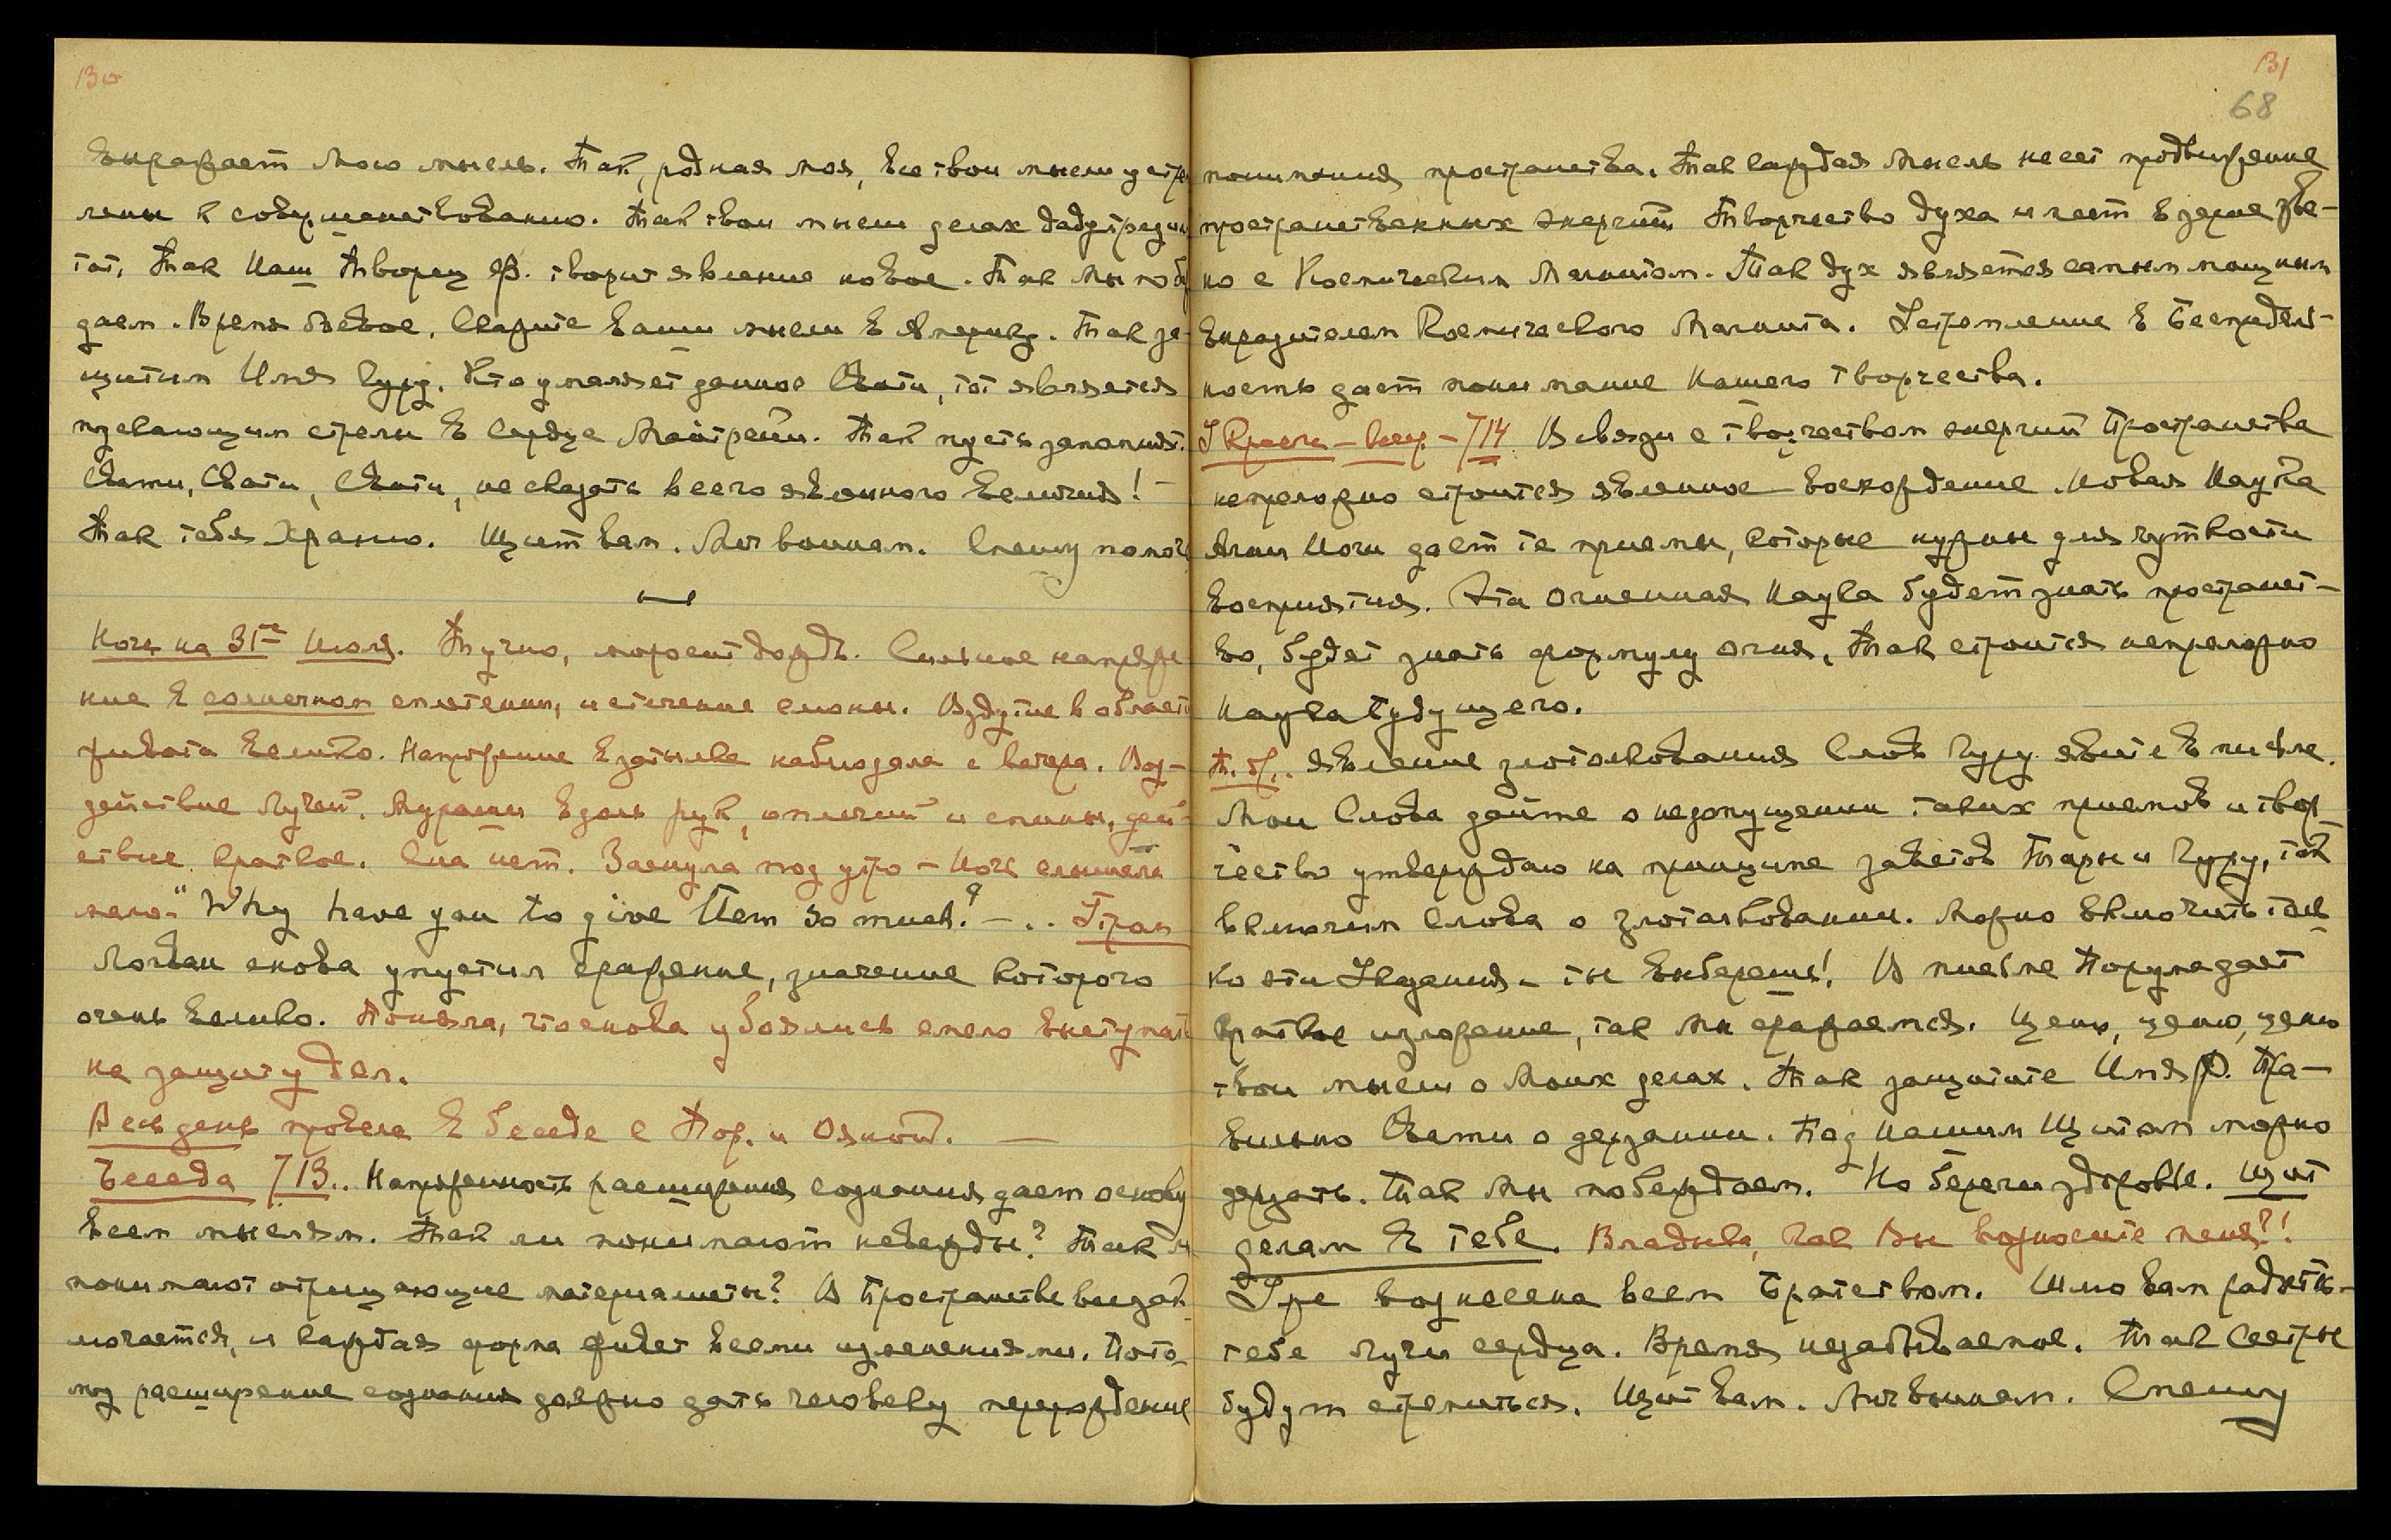 130
выражает Мою мысль. Так, родная моя, все твои мысли устрем
лены к совершенствованию. Так твои мысли делах дадут резуль
тат. Так Наш Творец Ф. творит явление новое. Так мы побеж
даем. Время боевое. Скажите ваши мысли в Америку. Так за-
щитим Имя Гуру. Кто умаляет данное Свати, тот является
пускающим стрелы в сердце Майтрейи. Так пусть запомнят.
Свати, Свати, Свати, не сказать всего явленного величия! —
Так тебя Храню. Щит вам. Меч воинам. Спешу помочь
Ночь на 31ое Июля. Тучно, моросит дождь. Сильное напряже
ние в солнечном сплетении, истечение слюны. Вздутие в области
живота велико. Напряжение в затылке наблюдала с вечера. Воз-
действие Лучей. Мурашки вдоль рук, оплечий и спины, дей-
ствие краткое. Сна нет. Заснула под утро — Ночь слышала
мало — "Why have you to give them so much?" — .. Г. Трам
Логван снова упустил сражение, значение которого
очень велико. Поняла, что снова убоялись смело выступать
на защиту дел.
Весь день провела в беседе с Пор. и Ояной. —
Беседа 713.. Напряженность расширения сознания дает основу
всем мыслям. Так ли понимают невежды? Так ли
понимают отрицающие материалисты? В Пространстве все зак
лючается, и каждая форма живет всеми изменениями. Пото-
му расширение сознания должно дать человеку перерождение
131
68
понимания пространства. Так каждая мысль несет продвижение
пространственных энергий. Творчество духа имеет в зерне зве-
но с Космическим Магнитом. Так дух является самым мощным
выразителем Космического Магнита. Устремление в Беспредель-
ность дает понимание нашего творчества.
У Кресла — веч — 714. В связи с творчеством энергий Пространства
непреложно строится явленное восхождение. Новая Наука
Агни Йоги дает те приемы, которые нужны для чуткости
восприятия. Эта огненная Наука будет знать пространст-
во, будет знать формулу огня. Так строится непреложно
Наука Будущего.
Т. Я.. явление злотолкования Слов Гуру явите в письме.
Мои Слова дайте о недопущении таких приемов и твор-
чество утверждаю на принципе заветов Тары и Гуру, так
включим слова о злотолковании. Можно включить толь-
ко эти Указания — ты выберешь! В письме Порума дает
краткое изложение, так мы сражаемся. Ценю, ценю, ценю
твои мысли о Моих делах. Так защитите Имя Ф. Пра-
вильно Свати о дерзании. Под нашим Щитом можно
дерзать. Так мы побеждаем. Но береги здоровье. Щит
делам в тебе. Владыка, как Вы возносите меня?!
Уже вознесена всем Братством. Шлю вам радость —
тебе лучи сердца. Время незабываемое. Так Сестры
будут стремиться. Щит вам. Меч воинам. Спешу